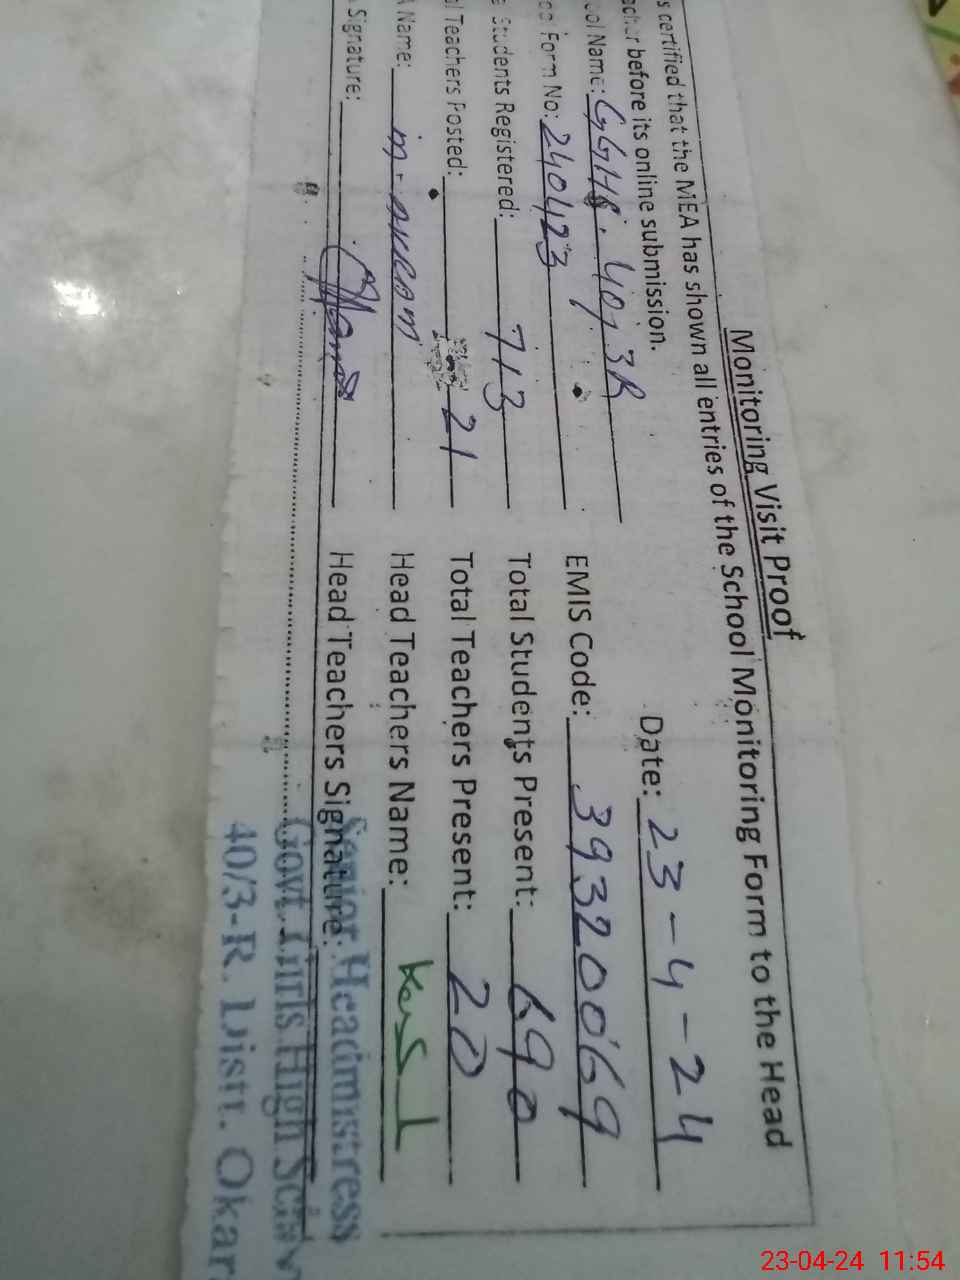 Monitoring Visit Proof
s certified that the MEA has shown all entries of the School Monitoring Form to the Head
acher before its online submission.
Date: 23-4-24
ool Name: GGHS. 40/3R
ce Form No: 240423
EMIS Code: 39320069
e Students Registered: 713
Total Students Present: 690
al Teachers Posted: 21
Total Teachers Present: 20
A Name: m-
Head Teachers Name:
Signature:
Head Teachers Signature:
Senior Headmistress
Govt. Girls High School
40/3-R. Distt. Okar
23-04-24 11:54